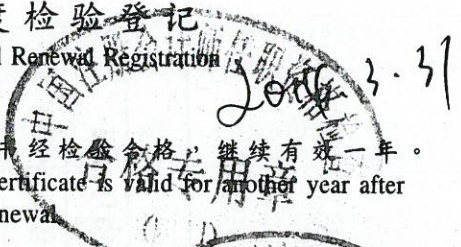 度检验登记
l Renewal Registration
3.31
书经检验合格，继续有效一年。
ertificate is valid for another year after
newal
合格专用章